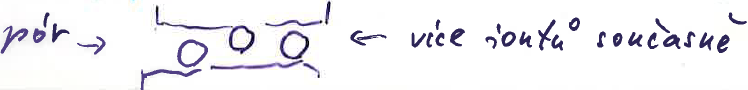 pór → ← více iontů současně